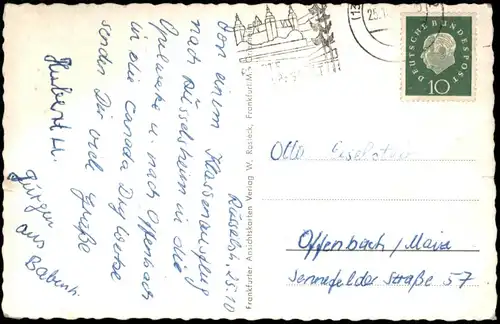 Rüsselsh. 25.10
Von einem Klassenausflug
nach Rüsselsheim in die
Opelwerke u. nach Offenbach
in die Canada Dry Werke
senden Dir viele Grüße
Hubert H.
Jürgen
aus Babenh.
Frankfurter Ansichtskarten Verlag W. Rasieck, Frankfurt/M.
25.10
DEUTSCHE BUNDESPOST
10
Otto
Offenbach/Main
Sennefelder Straße 57